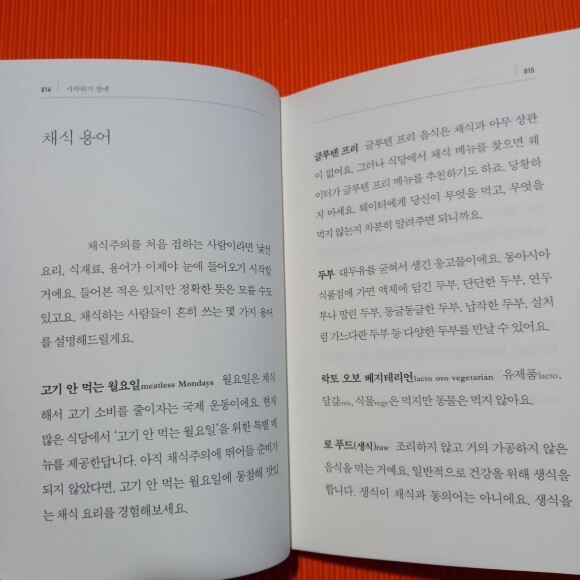 014 시작하기 전에
채식 용어
채식주의를 처음 접하는 사람이라면 낯선
요리, 식재료, 용어가 이제야 눈에 들어오기 시작할
거예요. 들어본 적은 있지만 정확한 뜻은 모를 수도
있고요. 채식하는 사람들이 흔히 쓰는 몇 가지 용어
를 설명해드릴게요.
고기 안 먹는 월요일meatless Mondays 월요일은 채식
해서 고기 소비를 줄이자는 국제 운동이에요. 현재
많은 식당에서 ‘고기 안 먹는 월요일’을 위한 특별 메
뉴를 제공한답니다. 아직 채식주의에 뛰어들 준비가
되지 않았다면, 고기 안 먹는 월요일에 동참해 맛있
는 채식 요리를 경험해보세요.
015
글루텐 프리 글루텐 프리 음식은 채식과 아무 상관
이 없어요. 그러나 식당에서 채식 메뉴를 찾으면 웨
이터가 글루텐 프리 메뉴를 추천하기도 하죠. 당황하
지 마세요. 웨이터에게 당신이 무엇을 먹고, 무엇을
먹지 않는지 차분히 알려주면 되니까요.
두부 대두유를 굳혀서 생긴 응고물이에요. 동아시아
식품점에 가면 액체에 담긴 두부, 단단한 두부, 연두
부나 말린 두부, 동글동글한 두부, 납작한 두부, 실처
럼 가느다란 두부 등 다양한 두부를 만날 수 있어요.
락토 오보 베지테리언lacto ovo vegetarian 유제품lacto,
달걀ovo, 식물vege은 먹지만 동물은 먹지 않아요.
로 푸드(생식)raw 조리하지 않고 거의 가공하지 않은
음식을 먹는 거예요. 일반적으로 건강을 위해 생식을
합니다. 생식이 채식과 동의어는 아니에요. 생식을